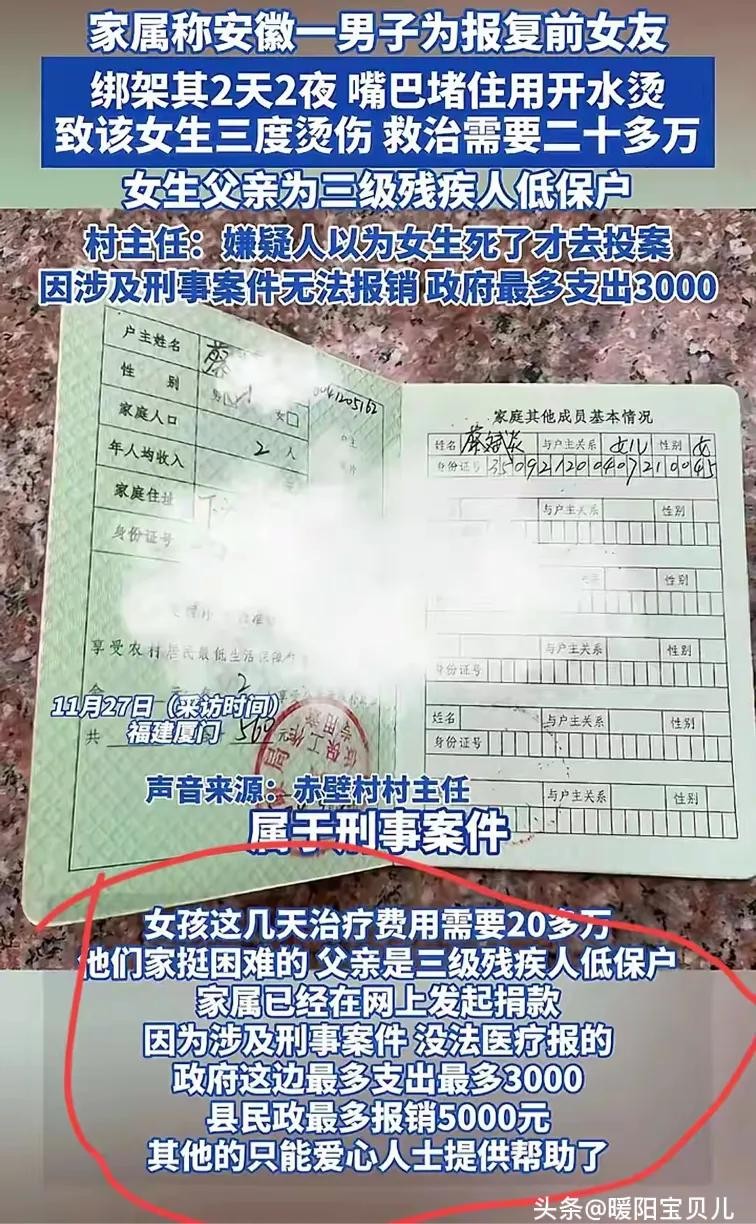 家属称安徽一男子为报复前女友
绑架其2天2夜 嘴巴堵住用开水烫
致该女生三度烫伤 救治需要二十多万
女生父亲为三级残疾人低保户
村主任：嫌疑人以为女生死了才去投案
因涉及刑事案件无法报销 政府最多支出3000
户主姓名 蔡
性 别 男 女□
家庭人口 2 人
年人均收入
家庭住址
身份证号
享受农村居民最低生活保障
11月27日（采访时间）
福建厦门
共 560 元
家庭其他成员基本情况
姓名 蔡 与户主关系 女儿 性别 女
身份证号 350921200407210045
与户主关系 性别
与户主关系 性别
与户主关系 性别
身份证号
姓名 与户主关系 性别
身份证号
与户主关系 性别
声音来源：赤壁村村主任
属于刑事案件
女孩这几天治疗费用需要20多万
他们家挺困难的 父亲是三级残疾人低保户
家属已经在网上发起捐款
因为涉及刑事案件 没法医疗报的
政府这边最多支出最多3000
县民政最多报销5000元
其他的只能爱心人士提供帮助了
头条@暖阳宝贝儿